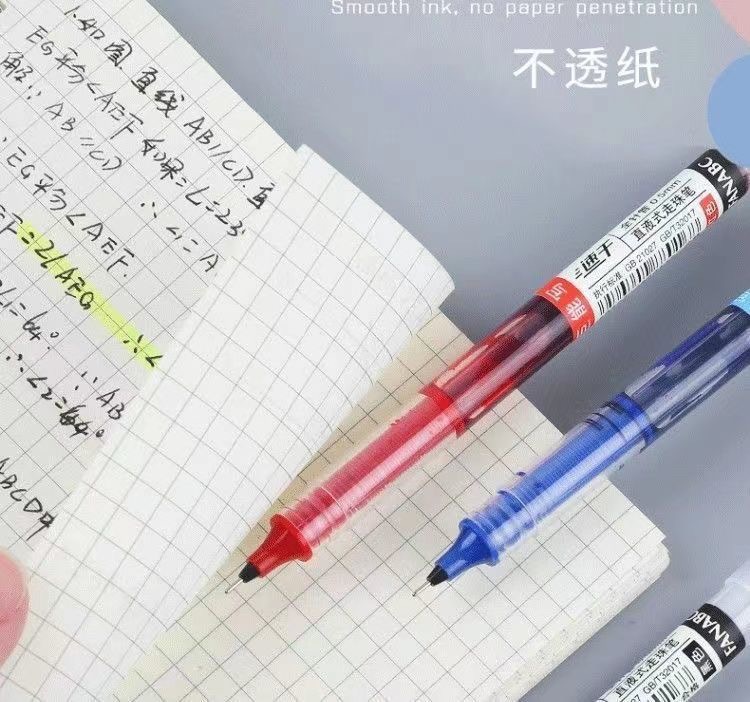 Smooth ink, no paper penetration
不透纸
1.如图,直线AB//CD.直
EG平分<AEF 如果=L=23
解∵AB//CD ∴<1=A
EG平分<AEF.
EF=2LAEG ∴<
21=64° ∵AB
∴<2=64°
ABCD中
FANABC
全针管 0.5mm
直液式走珠笔
速干
执行标准 GB 21027 GB/T32017
FANABC
直液式走珠笔
GB/T32017
黑色
合格